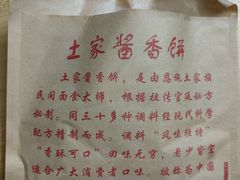 土家酱香饼
土家酱香饼，是由恩施土家族
民间面食大师，根据祖传宫廷秘方
秘制。同三十多种调料经现代科学
配方精制而成。调料“风味独特”
“香酥可口”回味无穷，老少皆宜
适合广大消费者口味。被称为中国